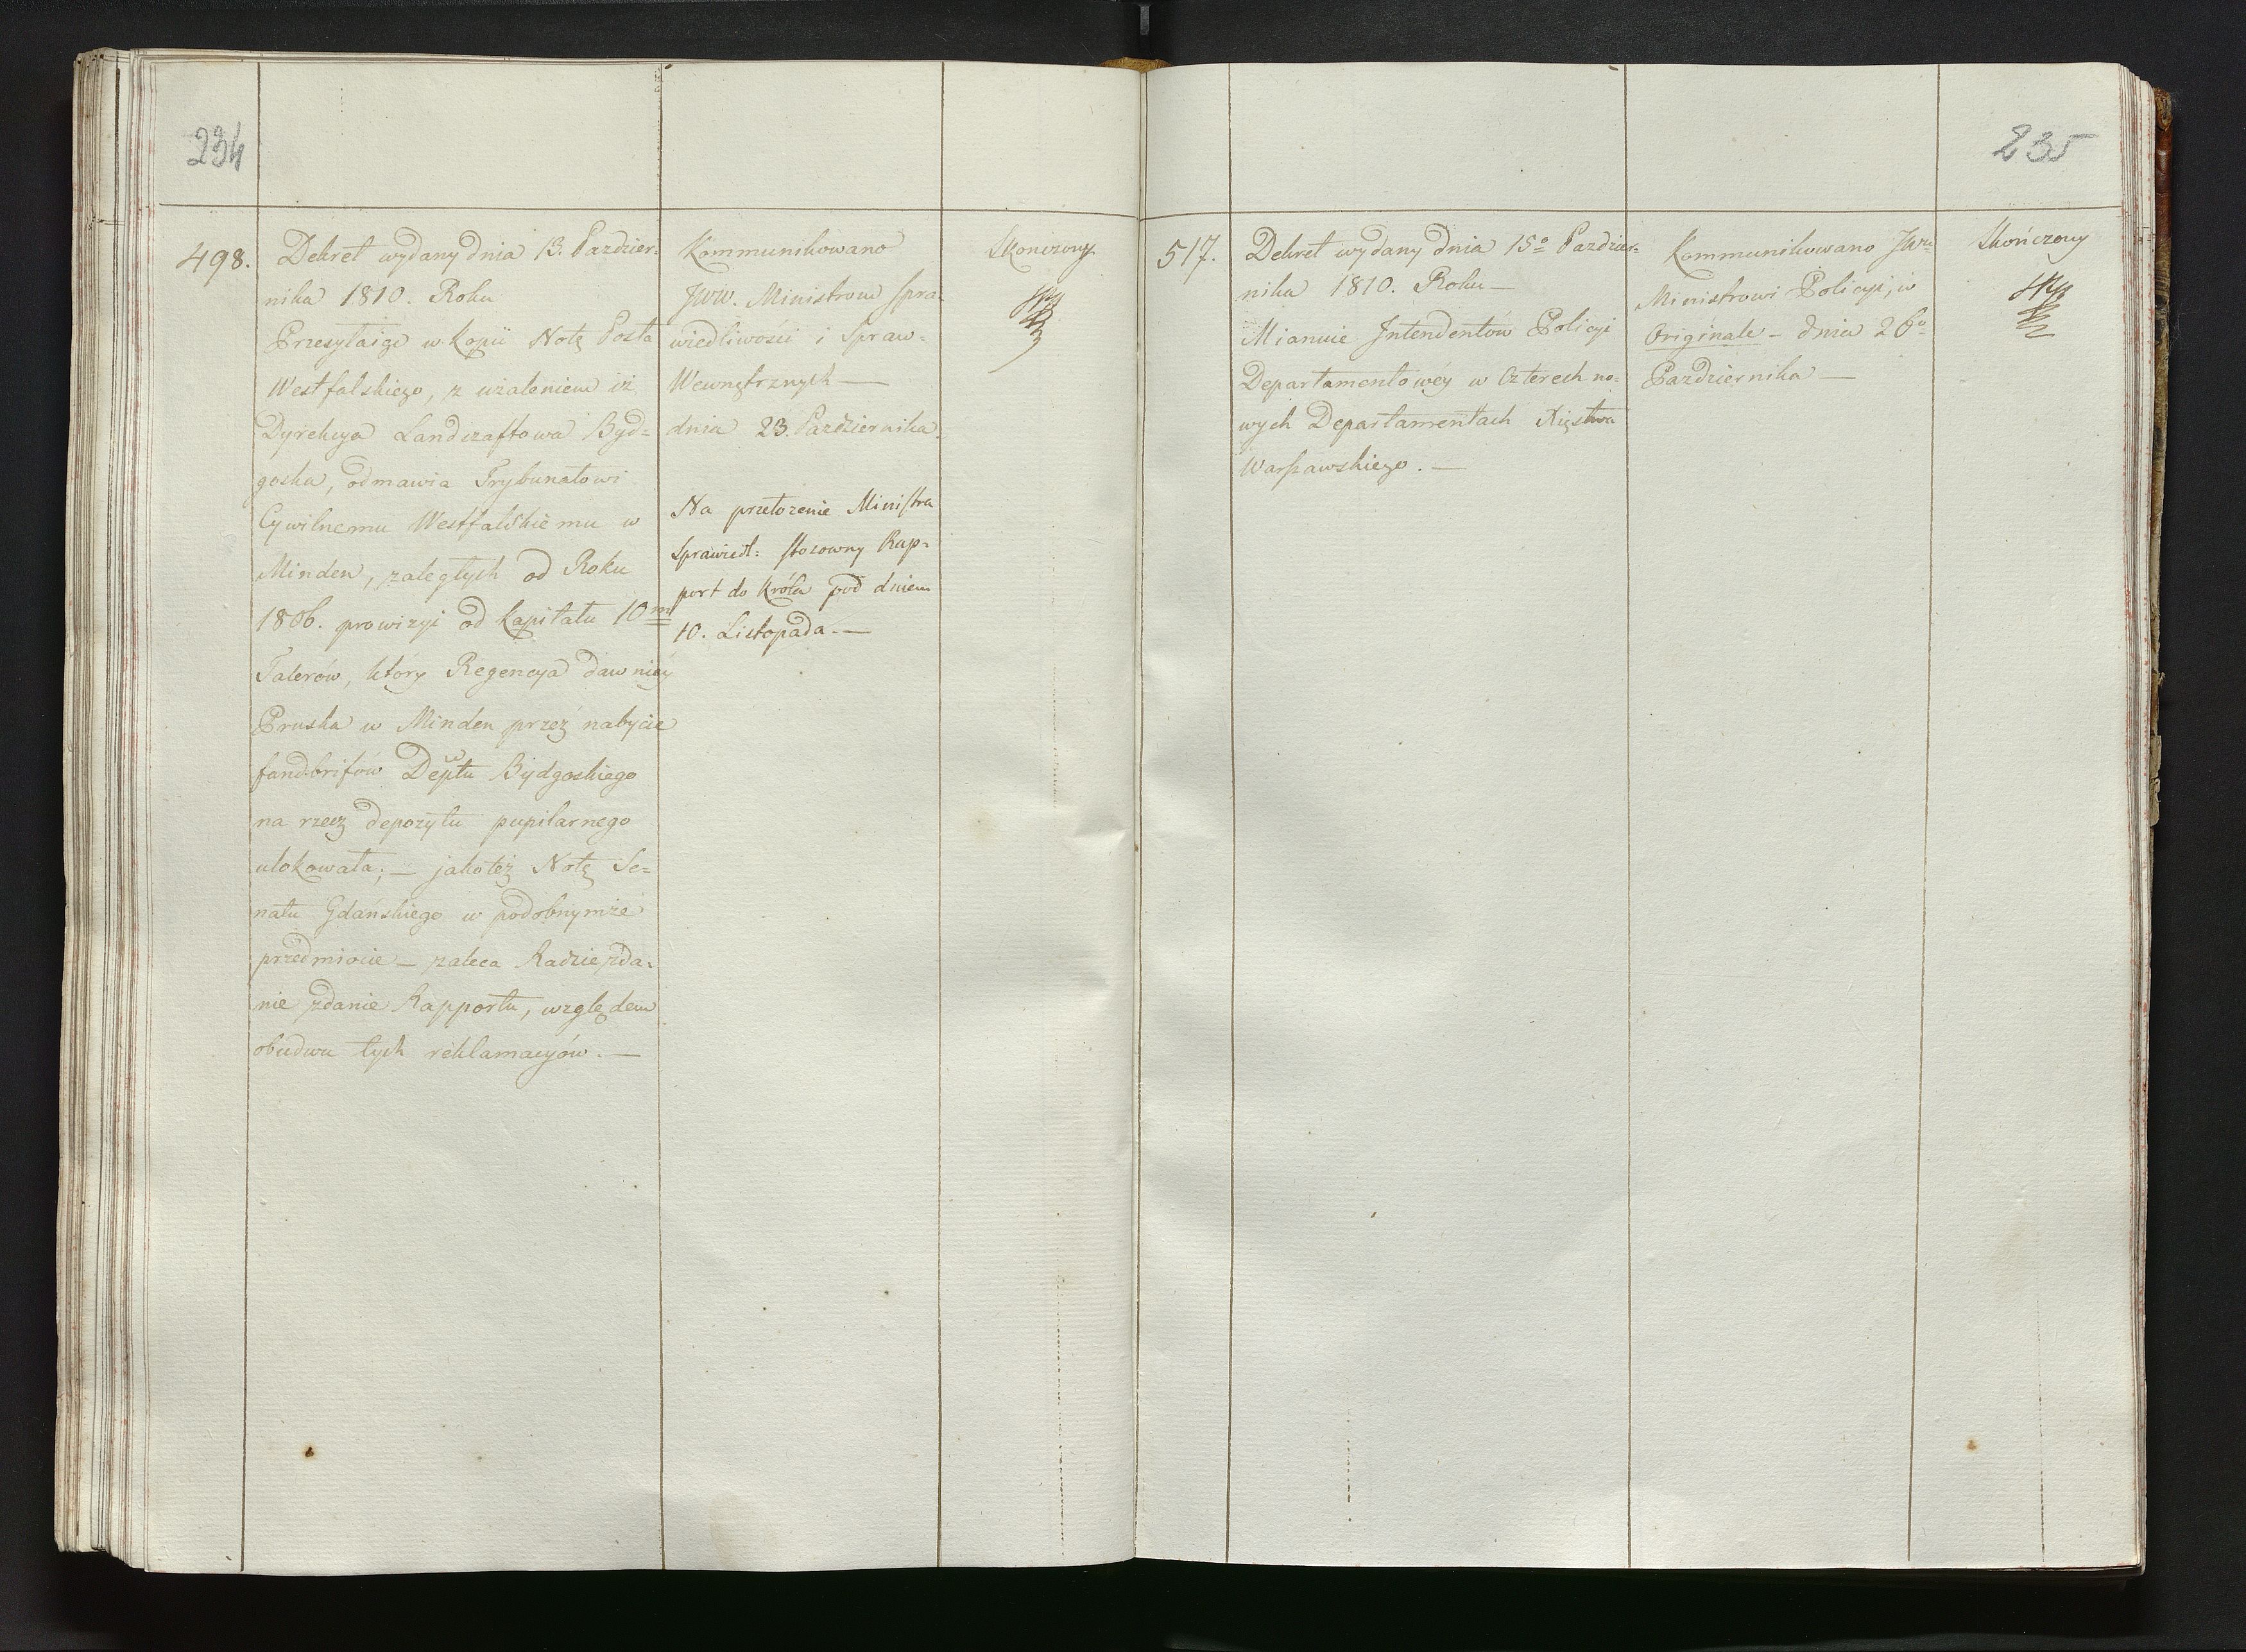 234
498.
Dekret wydany dnia 13. Pazdzier-
nika 1810. Roku
Przesyłaiąc w Kopii Notę Posła
Westfalskiego, z użaleniem iż
Dyrekcya Landszaftowa Byd=
goska, odmawia Trybunałowi
Cywilnemu Westfalskiemu w
Minden, zaległych od Roku
1806. prowizyi od Kapitału 10m
Talerów, który Regencya dawniéy
Pruska w Minden przez nabycie
fandbrifów Deptu Bydgoskiego
na rzecz depozytu pupilarnego
ulokowała; — jakoteż Notę Se=
natu Gdańskiego w podobnymże
przedmiocie — zaleca Radzie zda-
nie zdanie Rapportu, względem
obudwu tych reklamacyów. —
Kommunikowano
JWW. Ministrom Spra-
wiedliwości i Spraw-
Wewnętrznych —
dnia 23. Pazdziernika.
Na przełożenie Ministra
Sprawiedl: stosowny Rap-
port do Króla pod dniem
10. Listopada. —
Skonczony
235
517.
Dekret wydany dnia 15o Pazdzier-
nika 1810. Roku —
Mianuie Intendentów Policyi
Departamentowéy w Czterech no-
wych Departamentach Xięstwa
Warszawskiego. —
Kommunikowano JWu
Ministrowi Policyi, w
Originale — dnia 26o
Pazdziernika —
Skończony